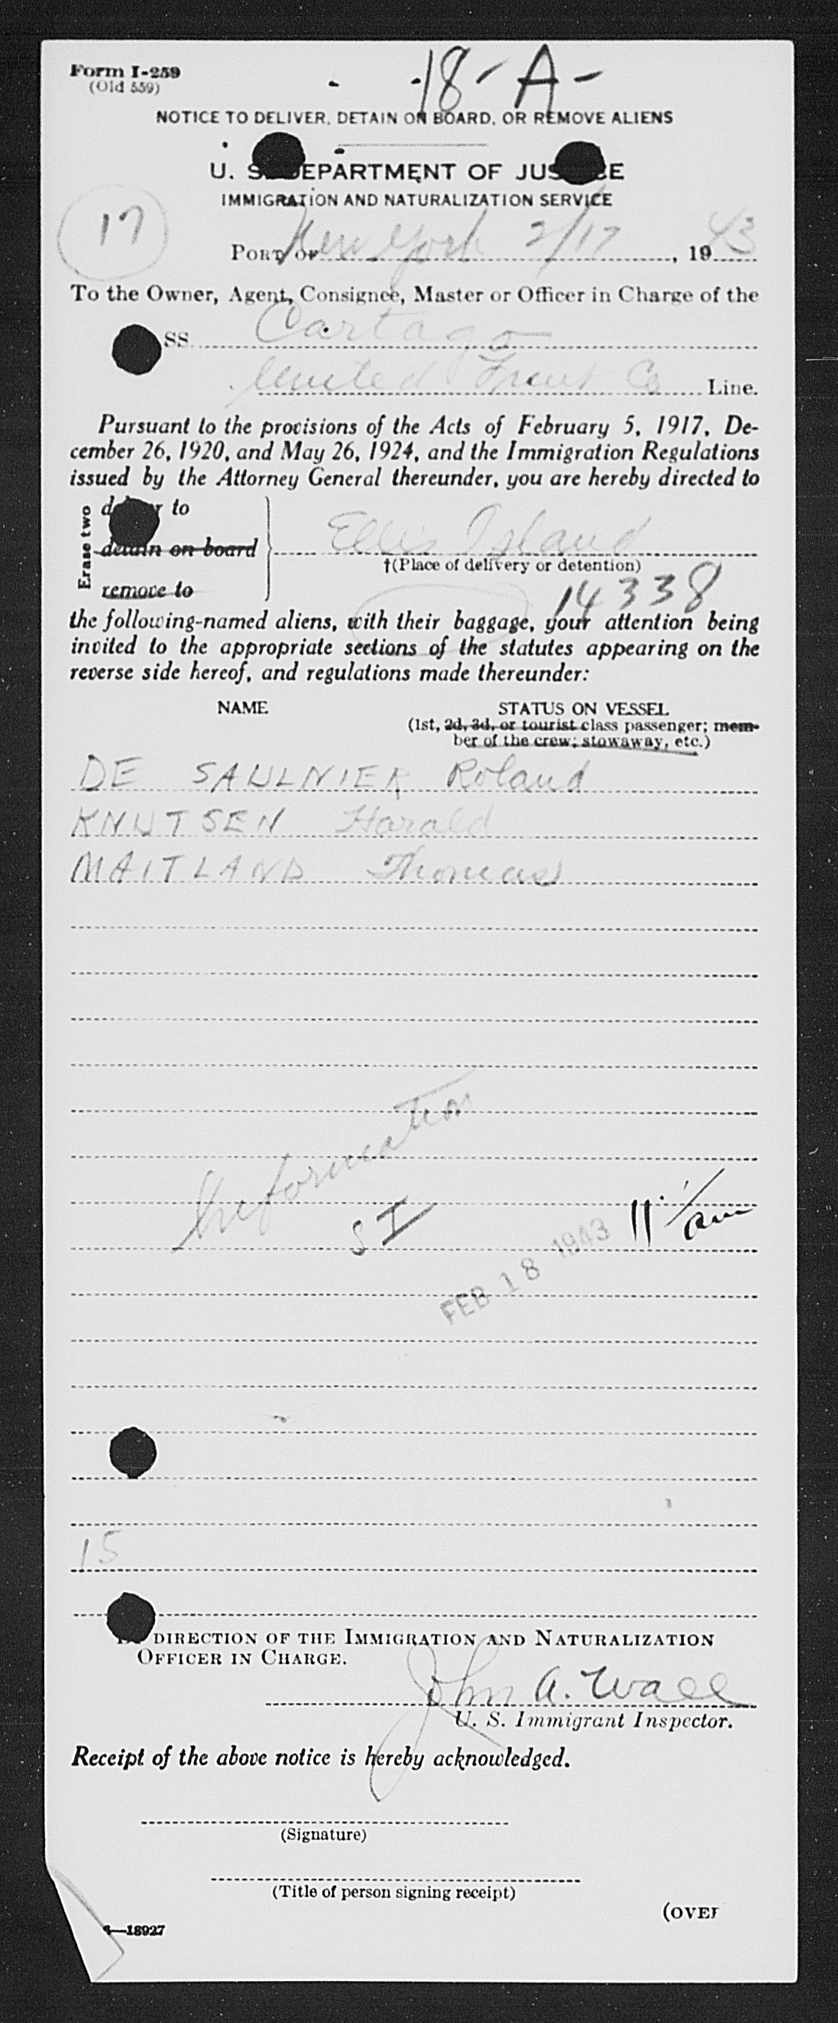 Form I-259
(Old 559)
-18-A-
NOTICE TO DELIVER, DETAIN ON BOARD, OR REMOVE ALIENS
U. S. DEPARTMENT OF JUSTICE
IMMIGRATION AND NATURALIZATION SERVICE
17
PORT OF New York 2/17, 1943
To the Owner, Agent, Consignee, Master or Officer in Charge of the
SS. Cartago
United Fruit Co Line.
Pursuant to the provisions of the Acts of February 5, 1917, De-
cember 26, 1920, and May 26, 1924, and the Immigration Regulations
issued by the Attorney General thereunder, you are hereby directed to
Erase two
deliver to
detain on board
remove to
Ellis Island
†(Place of delivery or detention)
14338
the following-named aliens, with their baggage, your attention being
invited to the appropriate sections of the statutes appearing on the
reverse side hereof, and regulations made thereunder:
NAME STATUS ON VESSEL
(1st, 2d, 3d, or tourist class passenger; mem-
ber of the crew; stowaway, etc.)
DE SAULNIER Roland
KNUTSEN Harald
MAITLAND Thomas
Information
SI
11 am
FEB 18 1943
15
BY DIRECTION OF THE IMMIGRATION AND NATURALIZATION
OFFICER IN CHARGE.
John A. Wall
U. S. Immigrant Inspector.
Receipt of the above notice is hereby acknowledged.
(Signature)
(Title of person signing receipt)
(OVER
—18927